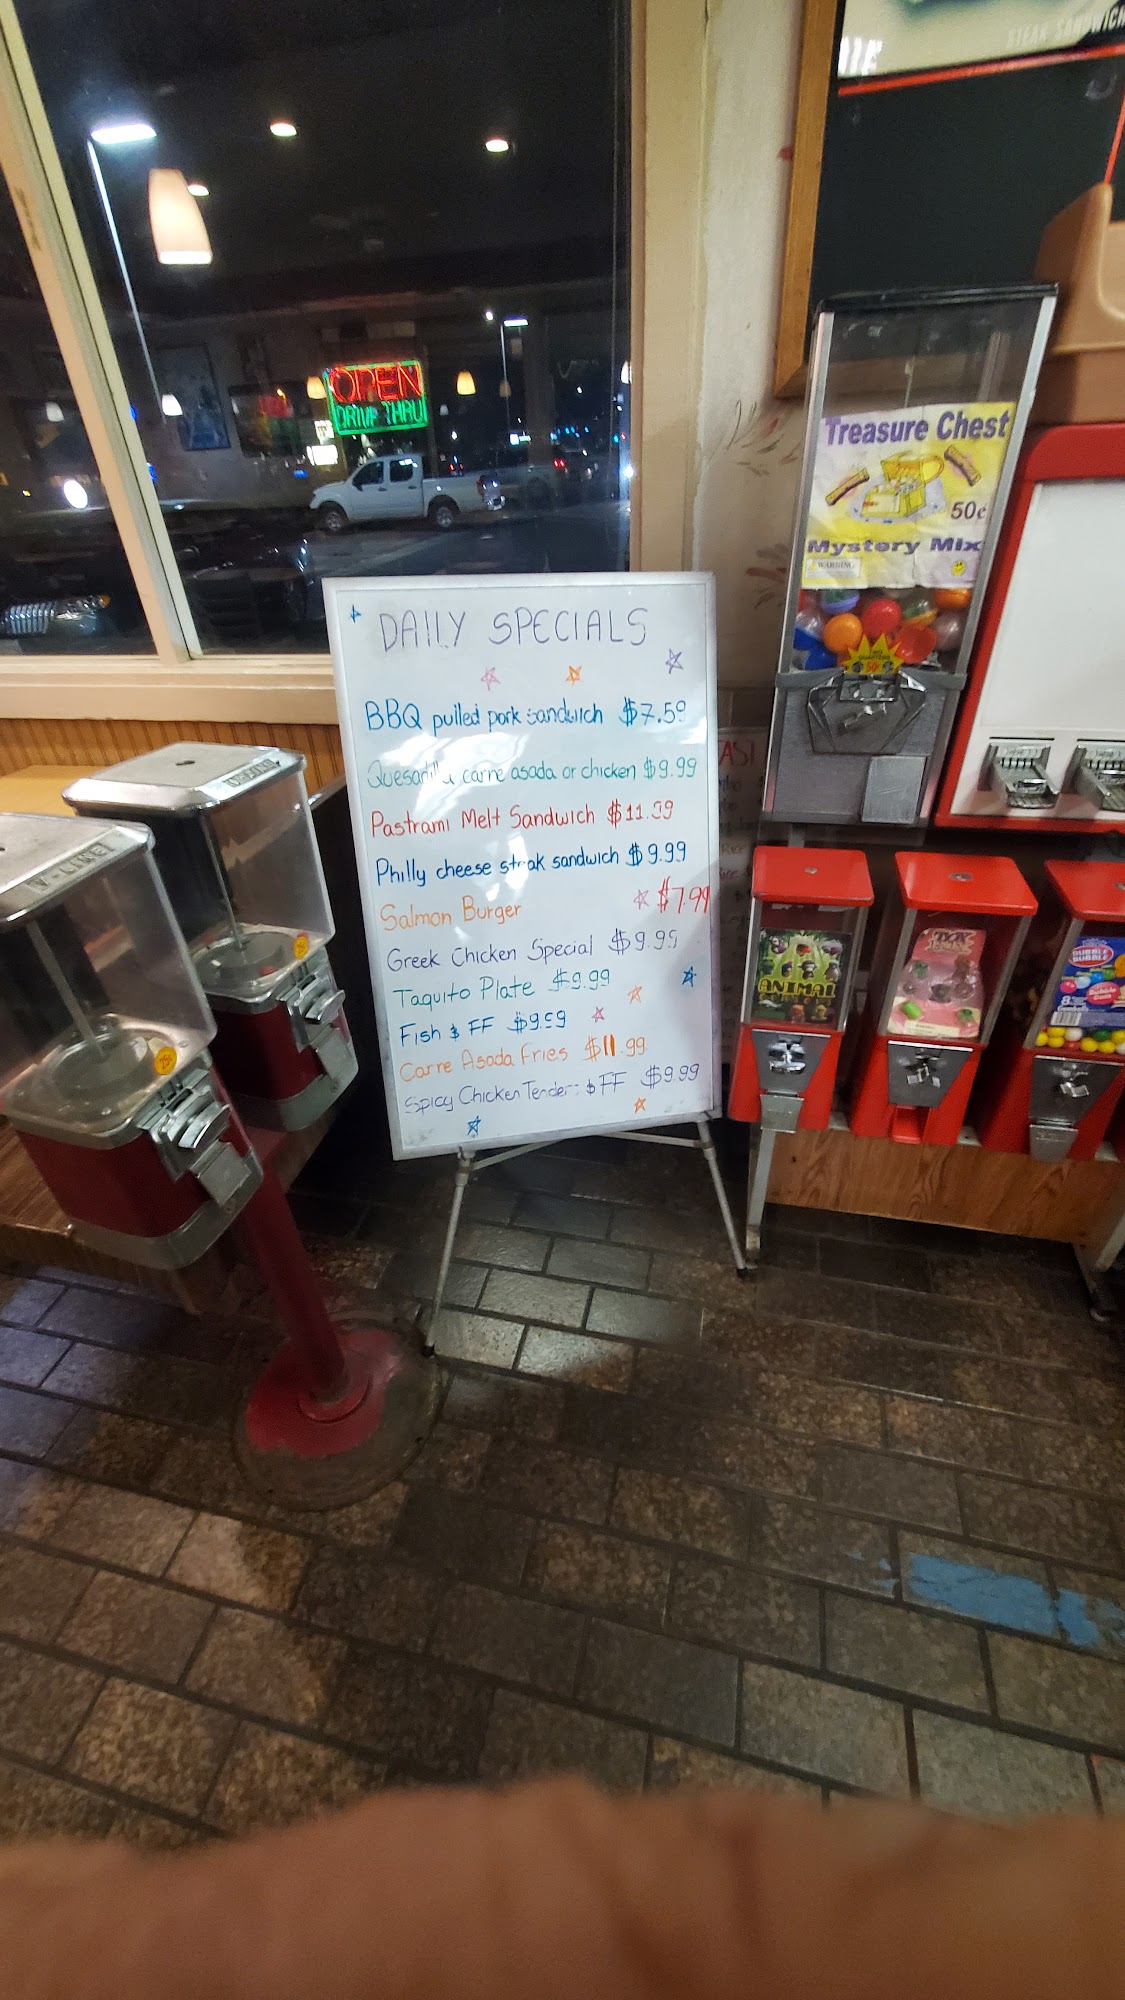 STEAK SANDWICH
OPEN
DRIVE THRU
Treasure Chest
50¢
Mystery Mix
WARNING
50¢
DAILY SPECIALS
BBQ pulled pork sandwich $7.59
Quesadilla carne asada or chicken $9.99
Pastrami Melt Sandwich $11.99
Philly cheese steak sandwich $9.99
Salmon Burger $7.99
Greek Chicken Special $9.99
Taquito Plate $9.99
Fish & FF $9.59
Carne Asada Fries $11.99
Spicy Chicken Tenders & FF $9.99
V-LINE
25¢
ANIMAL
DUBBLE
BUBBLE